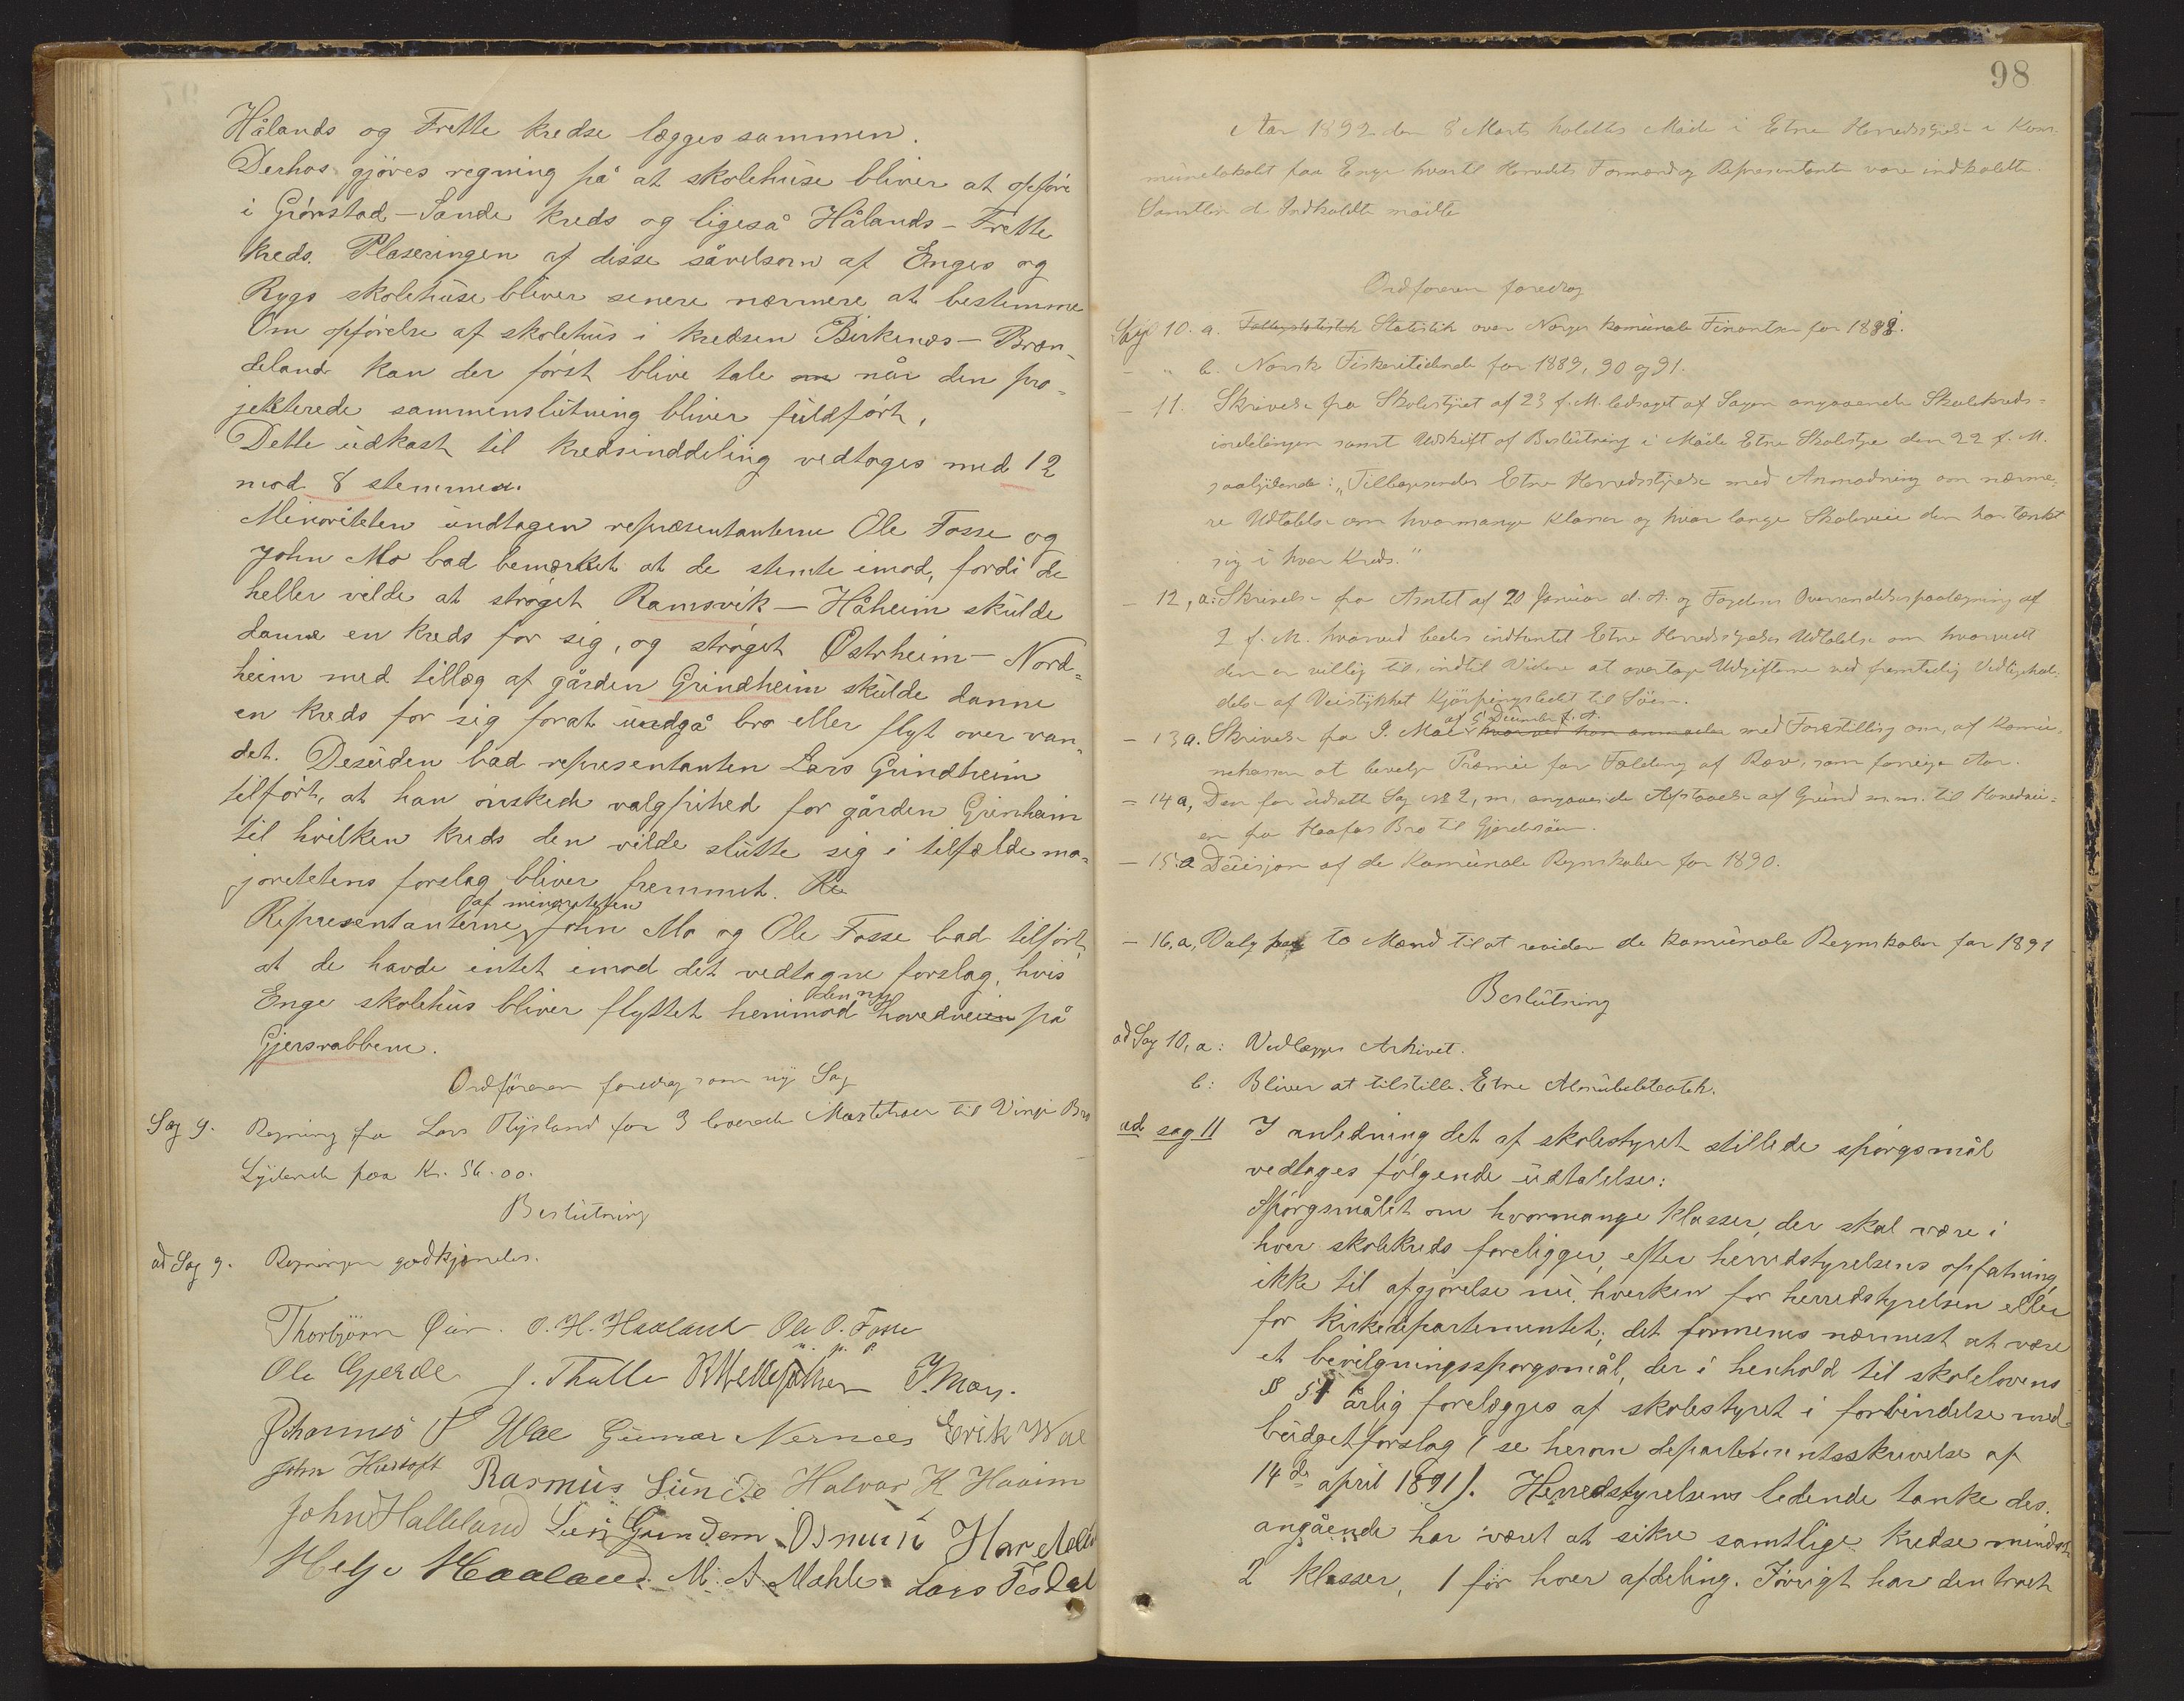 Hålands og Frette kredse lægges sammen.
Derhos gjöres regning på at skolehuse bliver at opföre
i Grönstad - Sande kreds og ligeså Hålands - Frette
kreds. Plaseringen af disse såvelsom af Enges og
Rygs skolehuse bliver senere nærmere at bestemme
Om opförelse af skolehus i kredsen Birkenæs - Bræn-
deland kan der först blive tale om når den pro-
jekterede sammenslutning bliver fuldfört,
Dette udkast til kredsinddeling vedtoges med 12
mod 8 stemmer.
Minoriteten undtagen repræsentanterne Ole Fosse og
John Mo bad bemærket at de stemte imod, fordi de
heller vilde at ströget Ramsvik - Håheim skulde
danne en kreds for sig, og ströget Östrheim - Nord-
heim med tillæg af gården Grindheim skulde danne
en kreds for sig forat undgå bro eller flyt over van-
det. Desuden bad representanten Lars Grindheim
tilfört, at han önskede valgfrihed for gården Grinheim
til hvilken kreds den vilde slutte sig i tilfælde ma-
joritetens forslag bliver fremmet. Re
af minoriteten
Representanterne John Mo og Ole Fosse bad tilfört,
at de havde intet imod det vedtagne forslag, hvis
den ny
Enge skolehus bliver flyttet henimod hovedveien på
Gjersvabbene.
Ordföreren foredrog som ny Sag
Sag 9. Regning fra Lars Rysland for 3 leverede Mastetræer til Vinje Bro
Lydende paa Kr. 56.00.
Beslutning
ad Sag 9. Regningen godkjendes.
Thorbjörn O. H. Haaland Ole O. Fosse
m. p. P
Ole Gjerde J. Thulle
Johannes Gunnar Nernæs Erik
John Rasmus Sunde Halvor K Haaim
John Halleland Osmun
Helge Haaland M. A. Mæhle Lars Tesdal
98
Aar 1892 den 8 Marts holdtes Möde i Etne Herredsstyrelse i Kom-
munelokalet paa Enge hvortil Herredets Formænd og Repræsentanter vare indkaldte.
Samtlige de Indkaldte mödte
Ordföreren foredrog
Sag 10. a. Statistik over Norges komunale Finantser for 1888.
- " b. Norsk Fiskeritidende for 1889, 90 og 91.
- 11. Skrivelse fra Skolestyret af 23 f. M. ledsaget af Sagen angaaende Skolekreds-
inddelingen samt Udskrift af Beslutning i Möde Etne Skolestyre den 22 f. M.
saalydende: "Tilbagesendes Etne Herredsstyrelse med Anmodning om nærme-
re Udtalelse om hvormange Klasser og hvor lange Skoleveie den har tænkt
sig i hver Kreds."
- 12, a: Skrivelse fra Amtet af 20 Januar d. A. og Fogdens Oversendelsespaategning af
2 f. M. hvorved bedes indhentet Etne Herredsstyrelses Udtalelse om hvorvidt
den er villig til, indtil Videre at overtage Udgifterne ved fremtidig Vedligehol-
delse af Veistykket til Söen.
af 5 December f. A.
- 13 a. Skrivelse fra hvorved han anmoder med Forestilling om, af Komu-
nekassen at bevilge Præmie for Fælding af Ræv, som forrige Aar.
- 14 a, Den før udsatte Sag No 2, m, angaaende Afstaaelse af Grund m. m. til Hovedvei-
en fra Haafos Bro til
- 15. a Decisjon af de Komunale Regnskaber for 1890.
- 16, a, Valg paa to Mænd til at revidere de komunale Regnskaber for 1891
Beslutning
ad Sag 10, a: Vedlægges Arkivet.
b: Bliver at tilstille Etne Almubibliotek.
ad sag 11 I anledning det af skolestyret stillede spörgsmål
vedtages fölgende udtalelser:
Spörgsmålet om hvormange klasser, der skal være i
hver skolekreds foreligger, efter herredstyrelsens opfatning,
ikke til afgjörelse nu, hverken for herredstyrelsen eller
for kirkedepartementet; det formenes nærmest at være
et bevilgningsspörgsmål, der i henhold til skolelovens
§ 51 årlig forelægges af skolestyret i forbindelse med
budgetforslag (se herom departementsskrivelse af
14de april 1891). Herredstyrelsens ledende tanke des-
angående har været at sikre samtlige kredse mindst
2 klasser, 1 for hver afdeling. Iövrigt har den troet